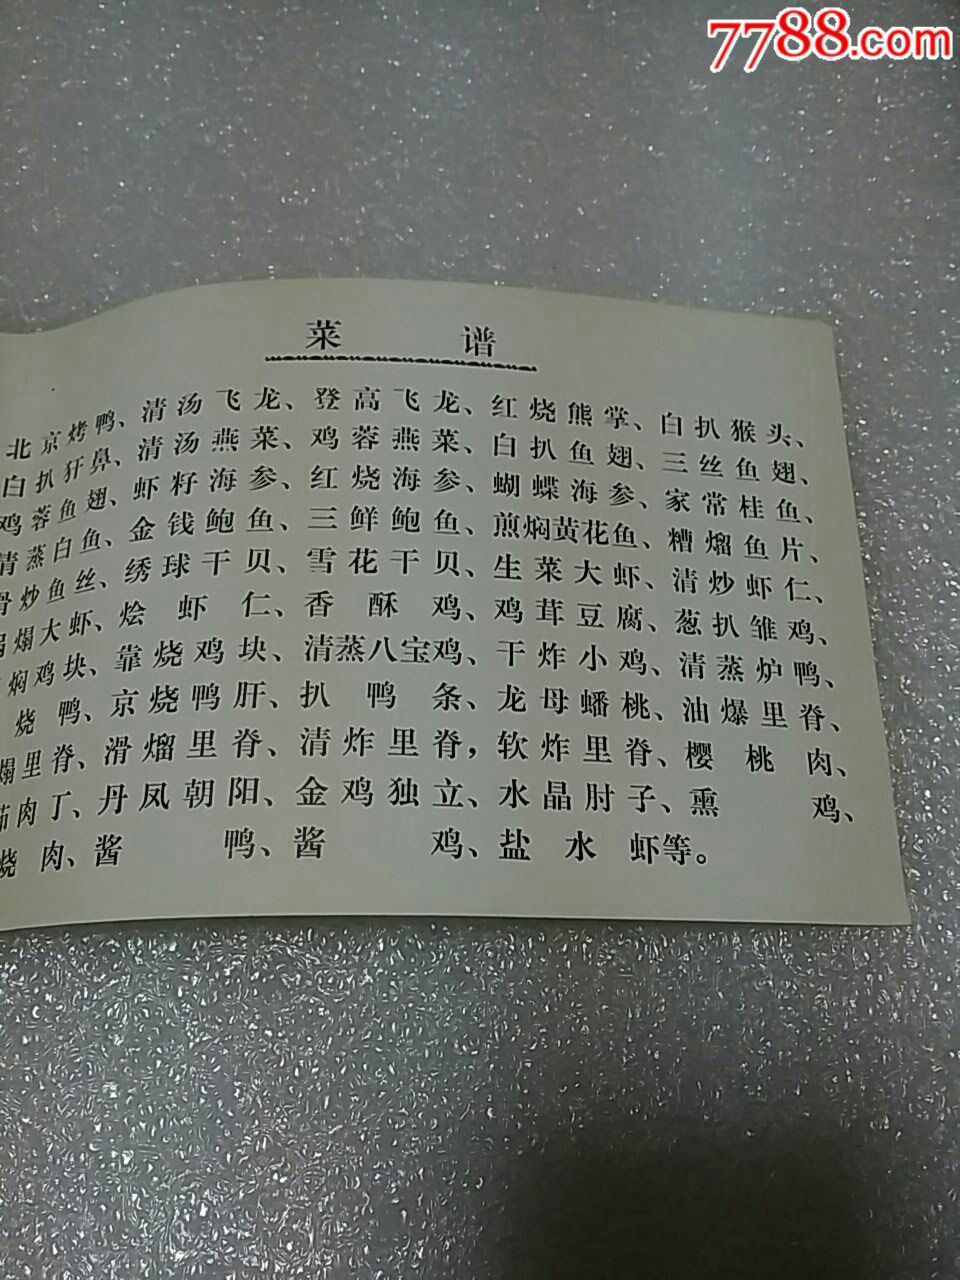 7788.com
菜 谱
北京烤鸭、清汤飞龙、登高飞龙、红烧熊掌、白扒猴头、
白扒犴鼻、清汤燕菜、鸡蓉燕菜、白扒鱼翅、三丝鱼翅、
鸡蓉鱼翅、虾籽海参、红烧海参、蝴蝶海参、家常桂鱼、
清蒸白鱼、金钱鲍鱼、三鲜鲍鱼、煎焖黄花鱼、糟熘鱼片、
滑炒鱼丝、绣球干贝、雪花干贝、生菜大虾、清炒虾仁、
煸大虾、烩虾仁、香酥鸡、鸡茸豆腐、葱扒雏鸡、
焖鸡块、靠烧鸡块、清蒸八宝鸡、干炸小鸡、清蒸炉鸭、
烧鸭、京烧鸭肝、扒鸭条、龙母蟠桃、油爆里脊、
塌里脊、滑熘里脊、清炸里脊，软炸里脊、樱桃肉、
茄肉丁、丹凤朝阳、金鸡独立、水晶肘子、熏鸡、
烧肉、酱鸭、酱鸡、盐水虾等。